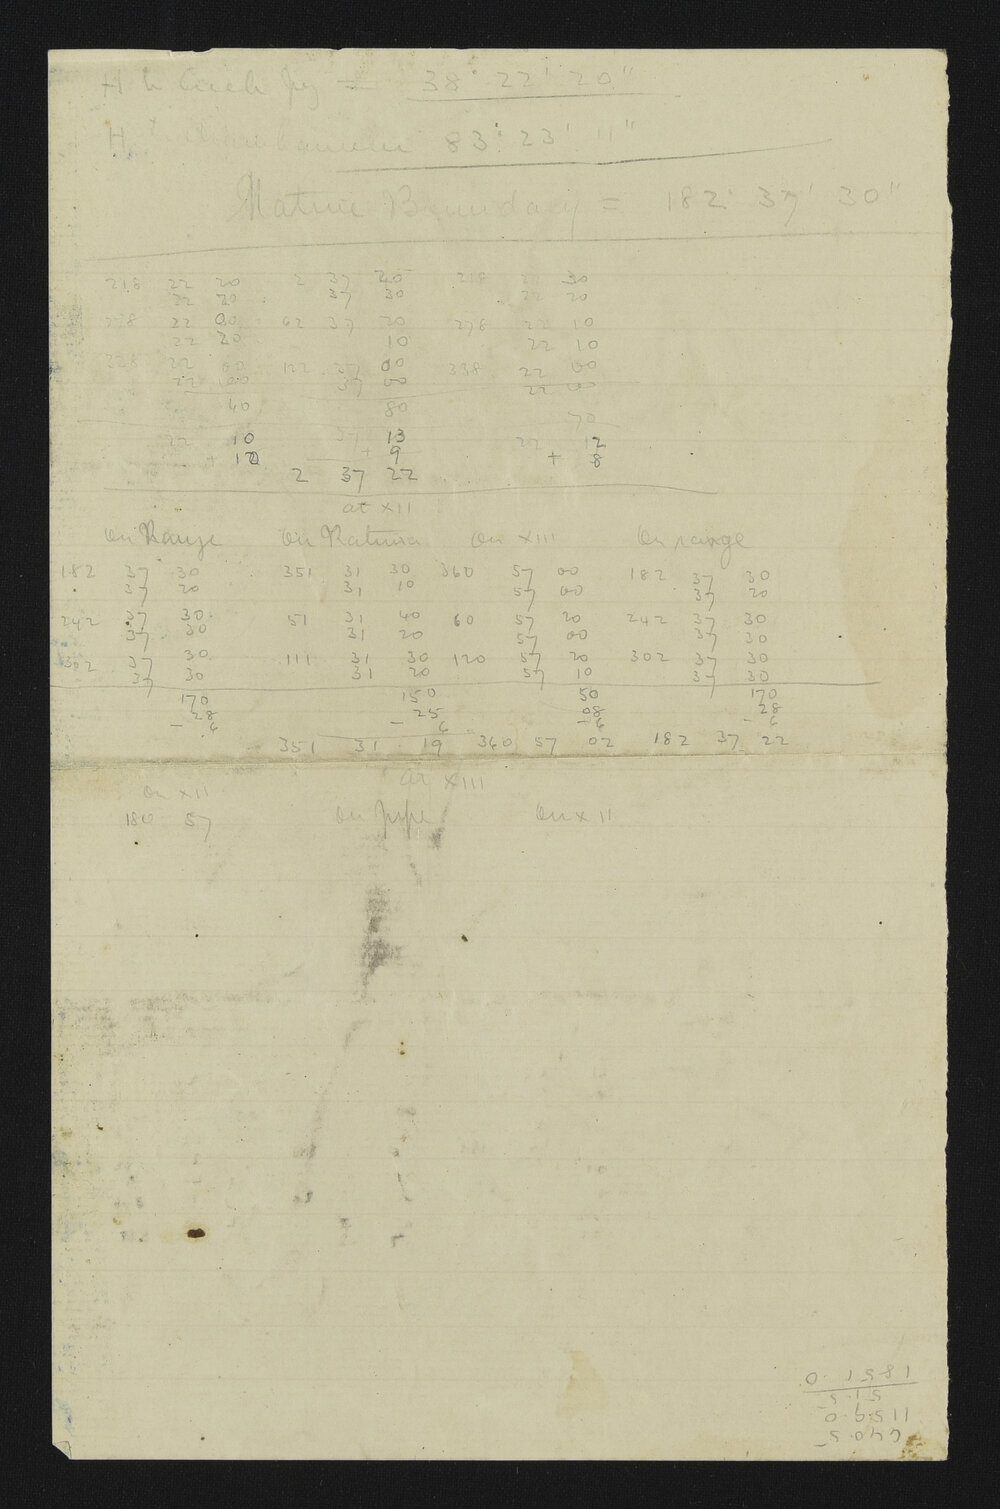 H 38° 22' 20"
H 83° 23' 11"
Native Boundary = 182° 37' 30"
218 22 20 2 37 20 218 22 30
22 20 37 30 22 20
278 22 00 62 37 20 278 22 10
22 20 10 22 10
338 22 00 122 37 00 338 22 00
22 00 37 00 22 00
60 80 70
22 10 37 13 22 12
+ 12 + 9 + 8
2 37 22
at XII
On Range On On XIII On range
182 37 30 351 31 30 360 57 00 182 37 30
37 20 31 10 57 00 37 20
242 37 30 51 31 40 60 57 20 242 37 30
37 30 31 20 57 00 37 30
302 37 30 111 31 30 120 57 20 302 37 30
37 30 31 20 57 10 37 30
170 150 50 170
28 25 08 28
- 6 - 6 - 6 - 6
351 31 19 360 57 02 182 37 22
at XIII
on XII
180 57 On On XII